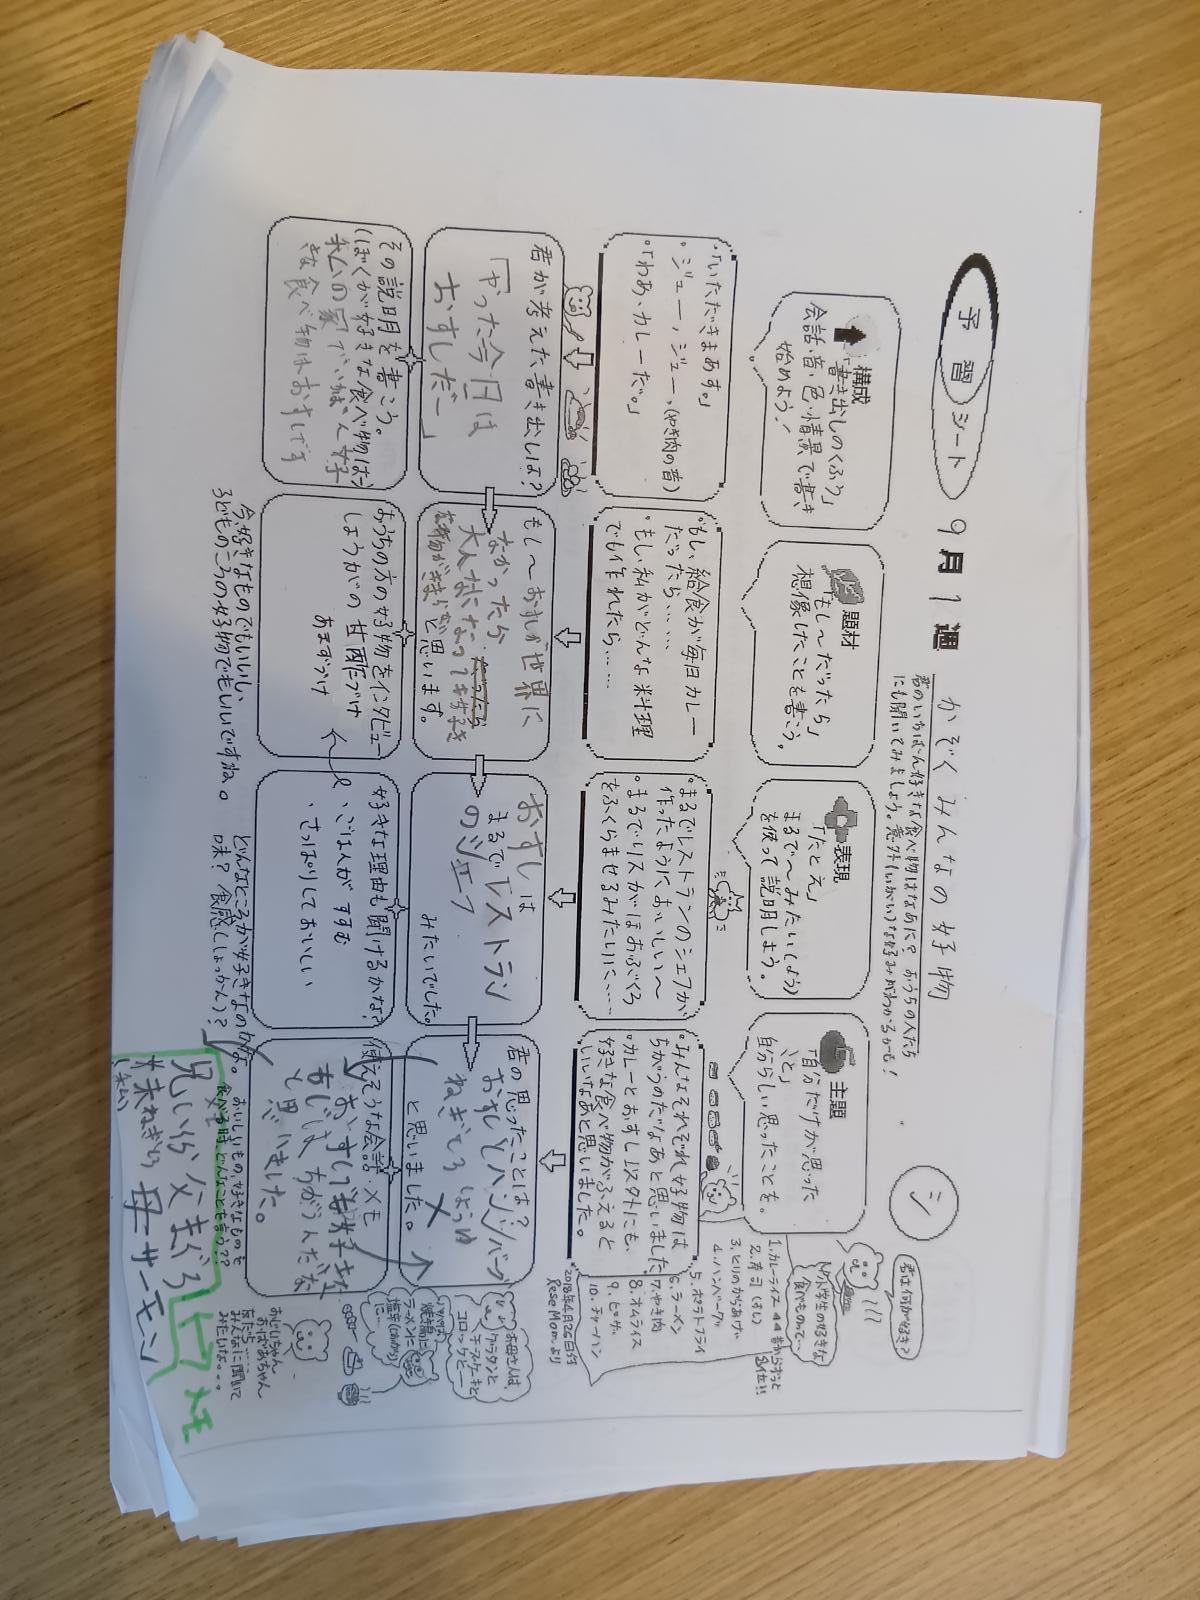 予習シート
9月1週
かぞくみんなの好物
君のいちばん好きな食べ物はなあに？おうちの人たち
にも聞いてみましょう。意外(いがい)な好みがわかるかも！
シ
君は何が好き？
構成
「書き出しのくふう」
会話・音・色・情景で書き
始めよう！
題材
「もし～だったら」
想像したことを書こう。
表現
「たとえ」
まるで～みたい(よう)
を使って説明しよう。
主題
「自分だけが思った
こと」
自分らしい思ったことを。
小学生の好きな
食べもの
1.カレーライス
昔からずっと
2.寿司(すし)
3.とりのからあげ
4.ハンバーグ
5.ポテトフライ
6.ラーメン
7.やき肉
8.オムライス
9.ピザ
10.チャーハン
2018年4月26日付
ReseMomより
・「いただきまあす。」
・ジュー、ジュー、(やき肉の音)
・「わあ、カレーだ。」
・もし、給食が毎日カレー
だったら……
・もし私がどんな料理
でも作れたら……
・まるでレストランのシェフが
作ったようにおいしい～
・まるでリスがほおぶくろ
をふくらませるみたいに……
・みんなそれぞれ好物は
ちがうのだなあと思いました
・カレーとおすし以外にも、
好きな食べ物がふえると
いいなあと思いました。
君が考えた書き出しは？
「やった今日は
おすしだー」
もし～おすしが世界に
なかったら
大人になっても好き
な物がきまらないと思います。
おすしは
まるでレストラン
のシェフ
みたいでした。
君の思ったことは？
おすしとハンバーグ
ねぎとろ しょうゆ
と思いました。
お母さんは、
グラタンと
チーズケーキと
コロッケと―
パパは
ラーメンに
塩辛
その説明を書こう。
(ぼくが好きな食べ物は～)
私の家でいちばん好き
な食べ物はおすしです
おうちの方の好物をインタビュー
しょうがの甘酢づけ
あまずづけ
好きな理由も聞けるかな？
・ごはんがすすむ
・さっぱりしておいしい
使えそうな会話・メモ
おすしでも好きな
あじは、ちがうんだな
と思いました。
今、好きなものでもいいし、
子どものころの好物でもいいですね。
どんなところが好きなのかな。
味？食感(しょっかん)？
おいしいもの、好きなものを
食べる時、どんなことを言う？？
おじいちゃん
おばあちゃん
みんなに聞いて
みたいな…
メモ
兄いくら 父まぐろ
妹ねぎとろ 母サーモン
(私)
メモ